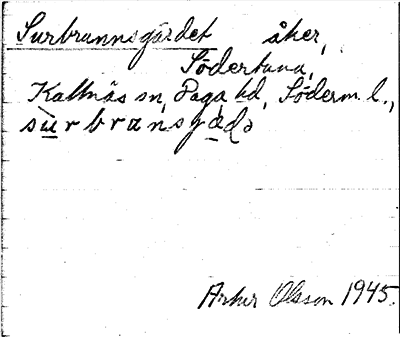 Surbrunnsgärdet åker,
Södertuna,
Kattnäs sn, Daga hd, Söderm. l.,
surbransgädə
Artur Olsson 1945.